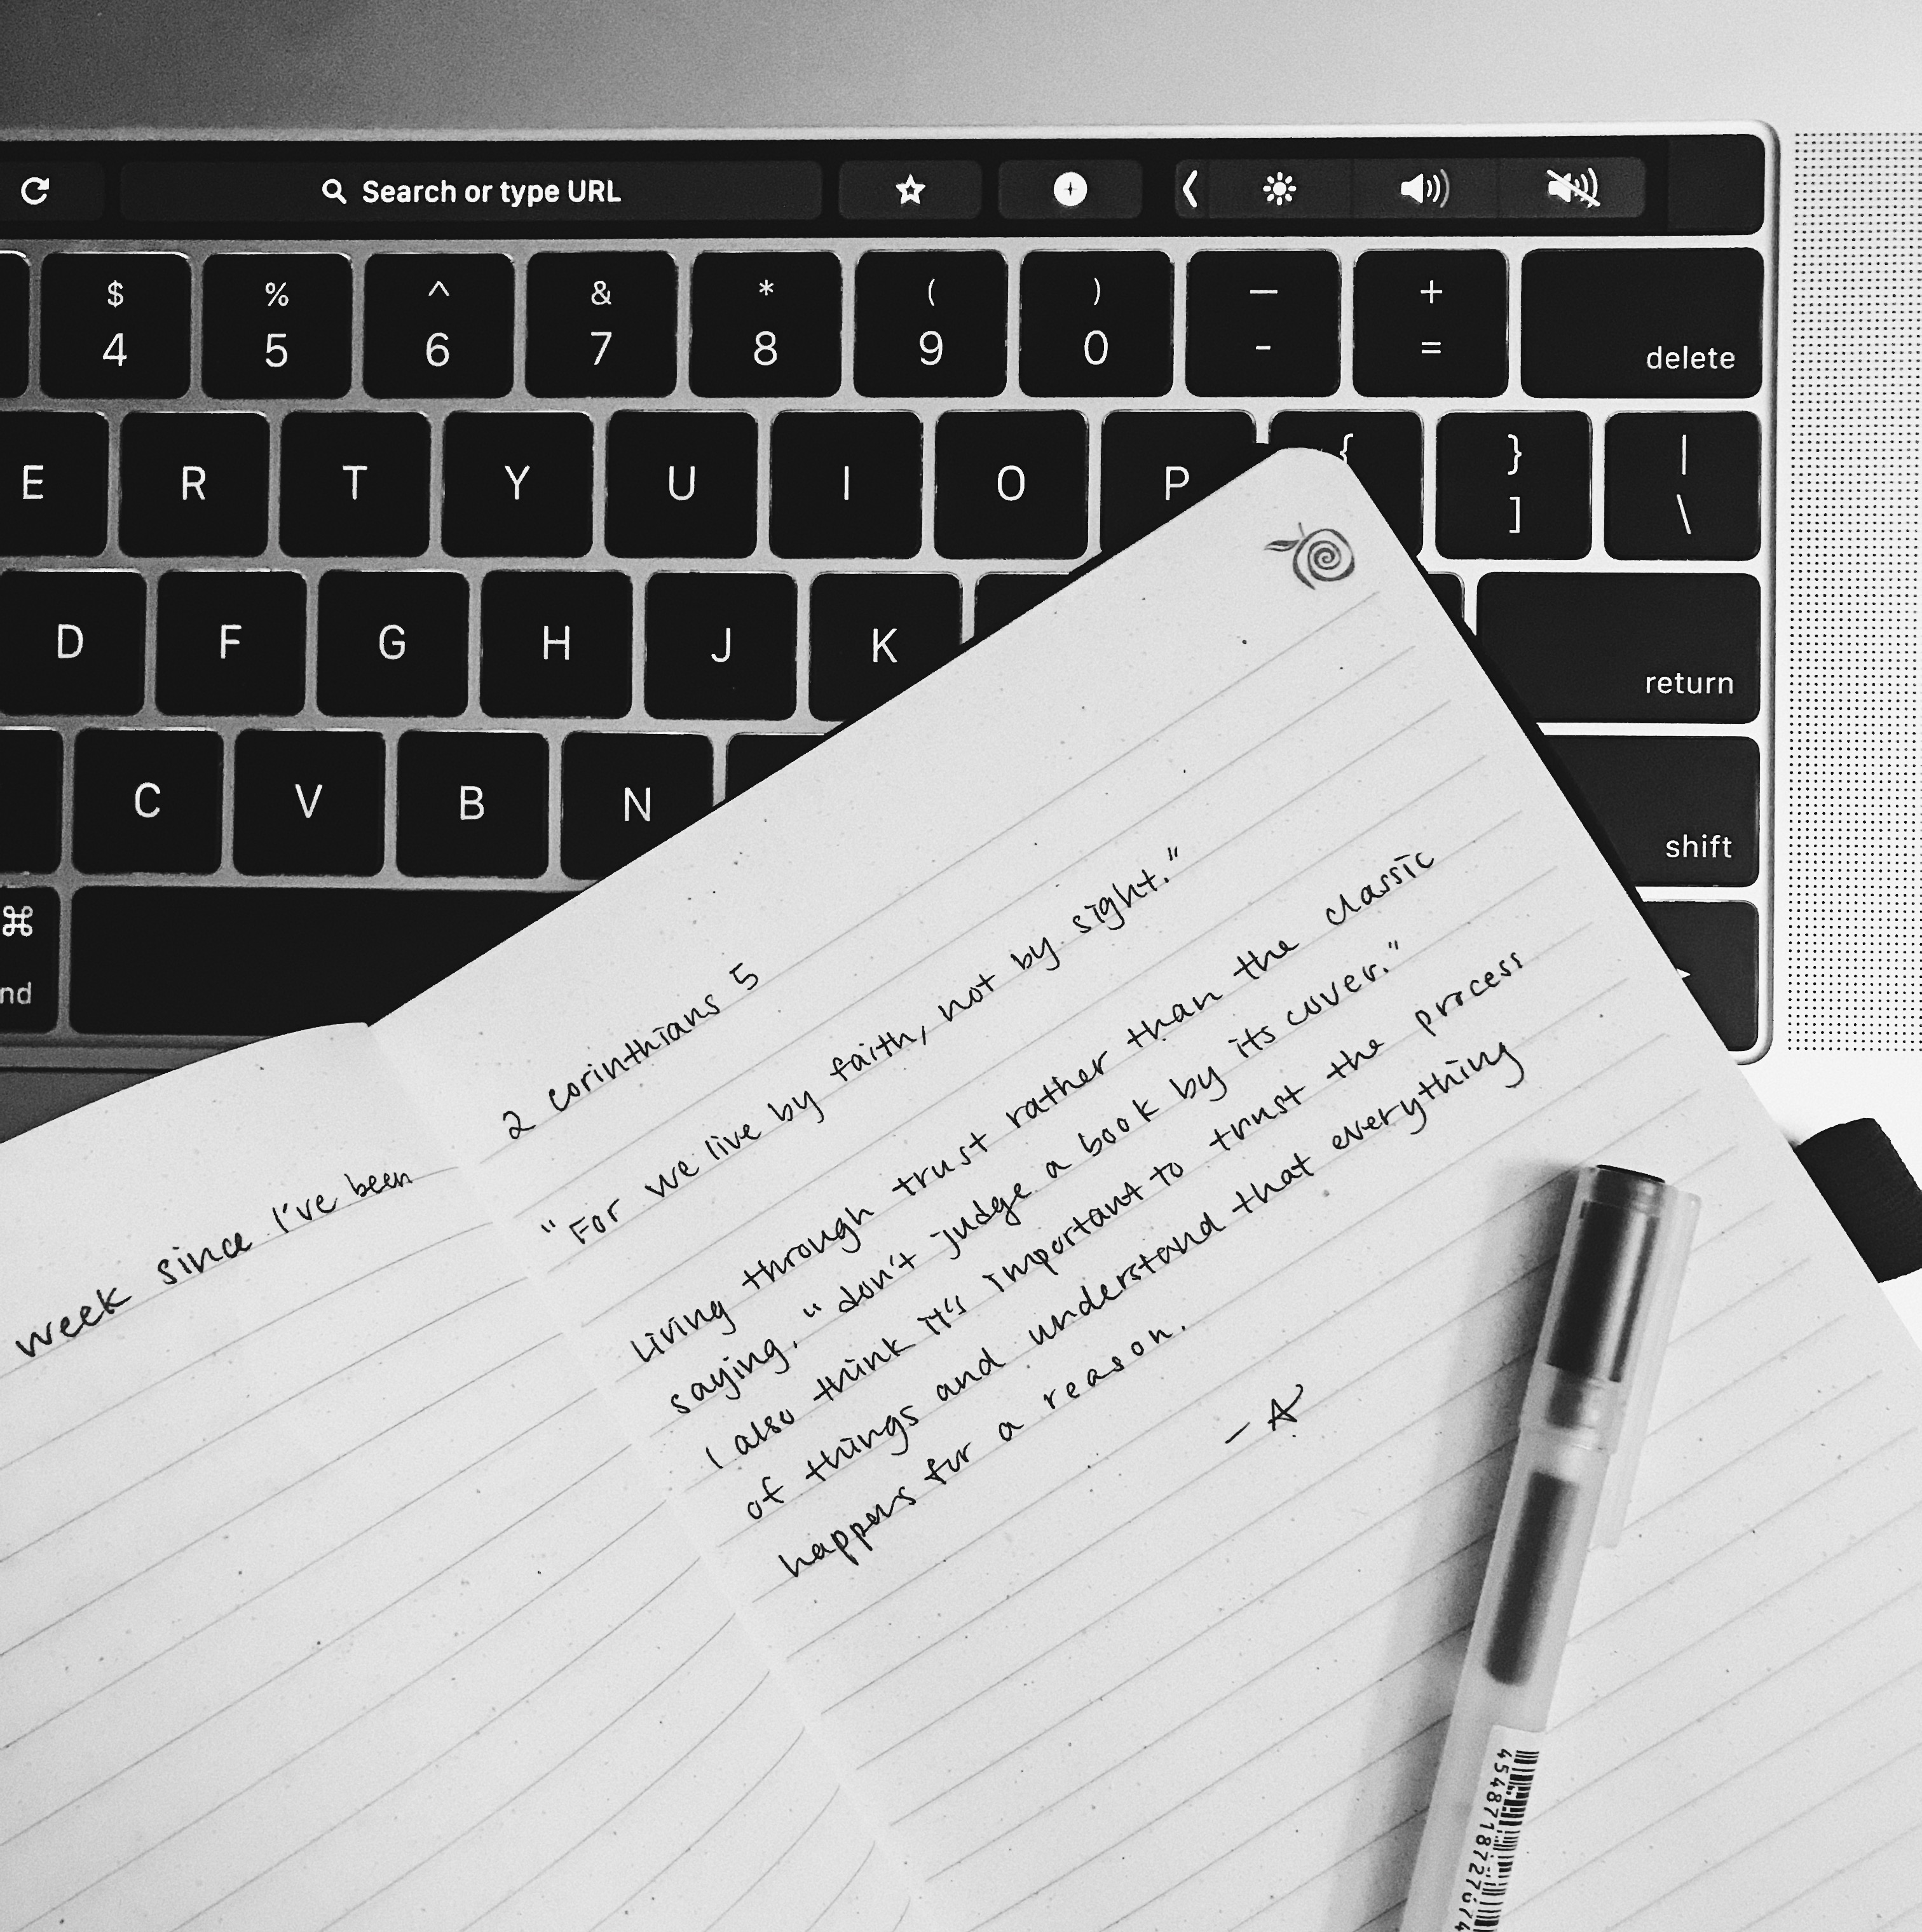 Search or type URL
$ % ^ & * ( ) — +
4 5 6 7 8 9 0 - = delete
E R T Y U I O P { } |
] \
D F G H J K return
C V B N shift
⌘
nd
week since I've been
2 corinthians 5
"For we live by faith, not by sight."
Living through trust rather than the classic
saying, "don't judge a book by its cover."
I also think it's important to trust the process
of things and understand that everything
happens for a reason.
— A